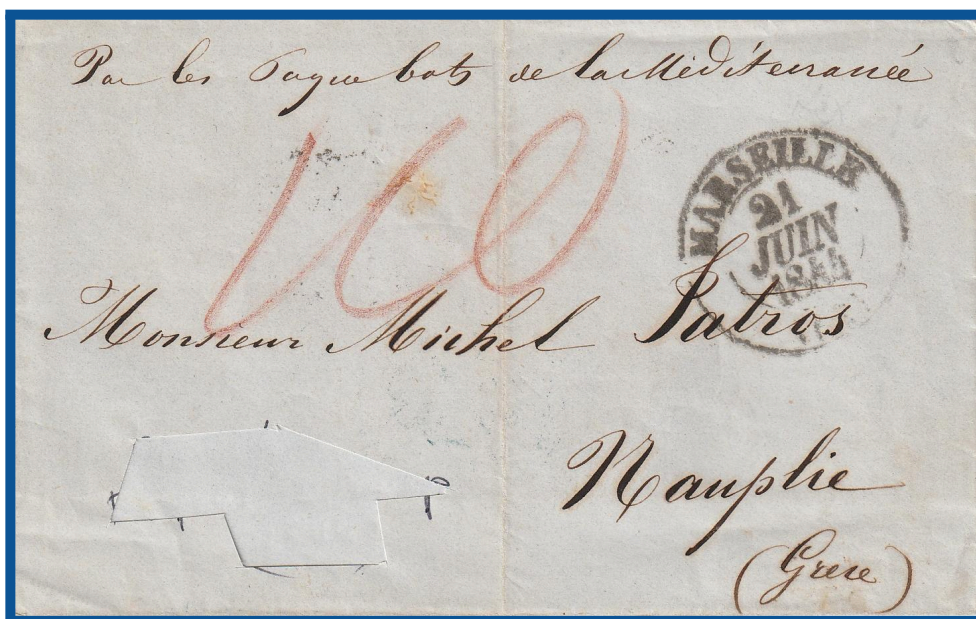 Par les Paquebots de la Méditerranée
160
MARSEILLE
21
JUIN
1854
Monsieur Michel Iatros
Nauplie
(Grece)